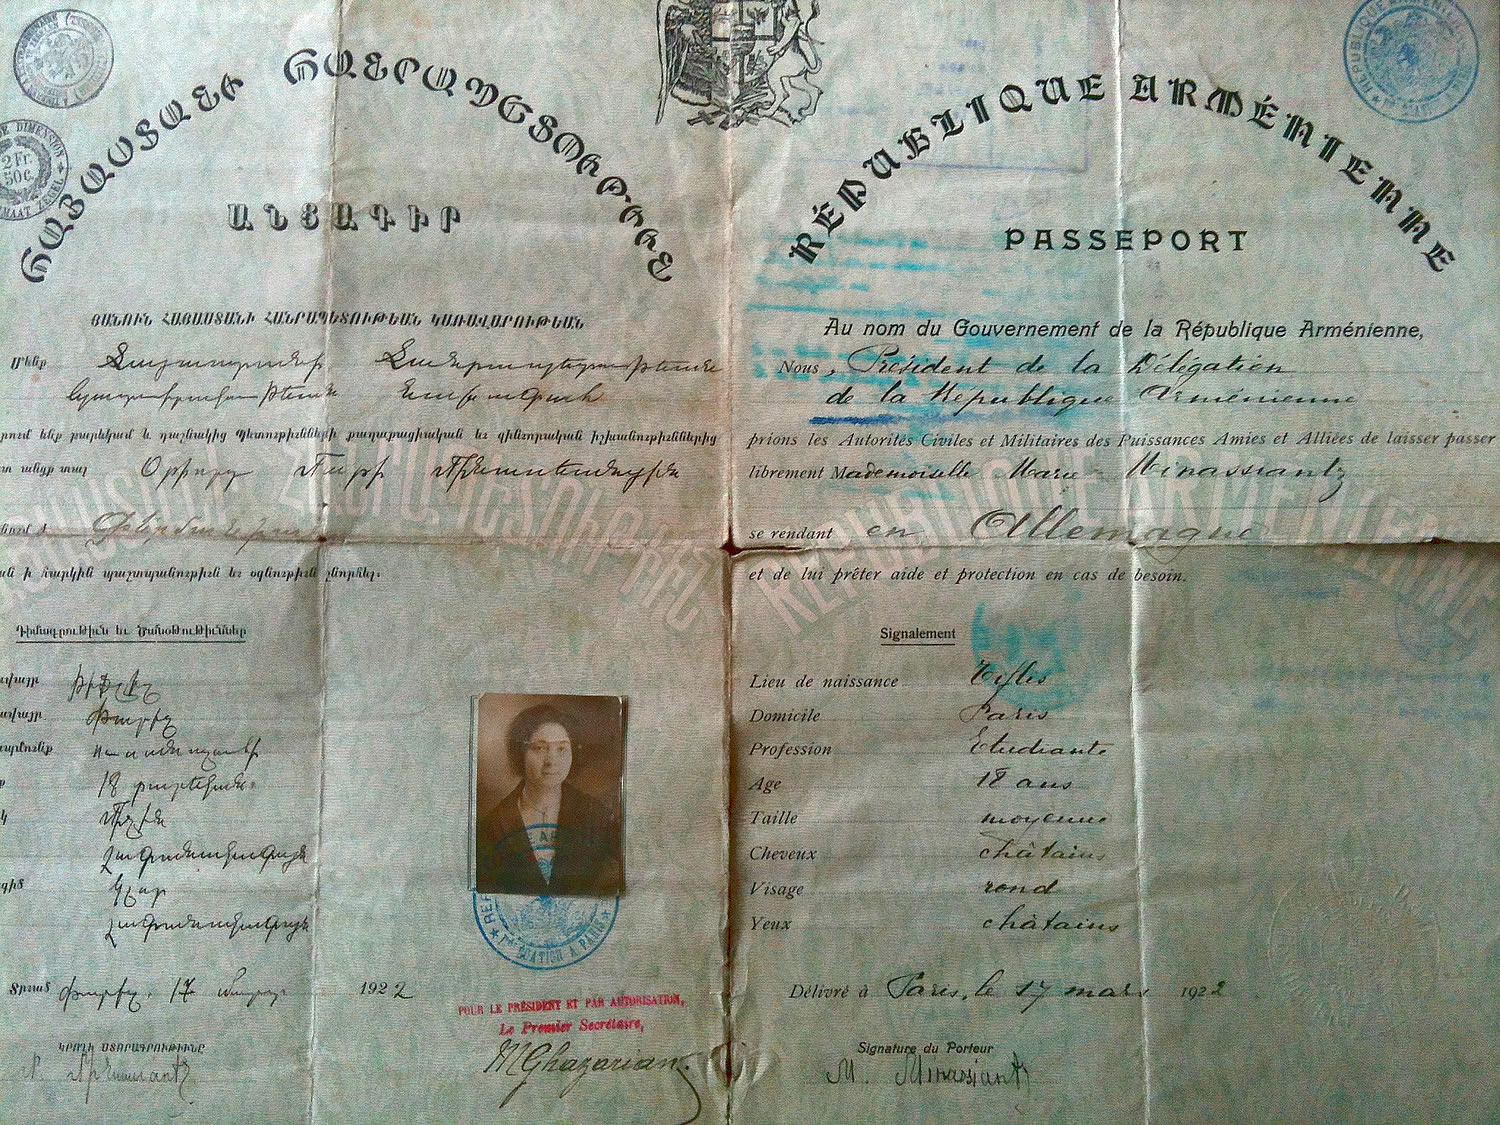 ՀԱՅԱՍՏԱՆԻ ՀԱՆՐԱՊԵՏՈՒԹԻՒՆ
ԱՆՑԱԳԻՐ
ՅԱՆՈՒՆ ՀԱՅԱՍՏԱՆԻ ՀԱՆՐԱՊԵՏՈՒԹԵԱՆ ԿԱՌԱՎԱՐՈՒԹԵԱՆ
Մենք Հայաստանի Հանրապետութեան
Նախագահ
ենք բարեկամ և դաշնակից Պետութիւններ քաղաքացիական եւ զինուորական իշխանութիւններից
անցք տալ Օրիորդ Մարի Մինասեանցին
ի հարկին պաշտպանութիւն եւ օգնութիւն շնորհել։
Դիմագրութիւն եւ Ծանօթութիւններ
Թիֆլիզ
Փարիզ
ուսանողուհի
18 տարեկան
միջին
շագանակագոյն
կլոր
շագանակագոյն
Տրուած Փարիզ, 17 մարտ 1922
ԿՐՈՂԻ ՍՏՈՐԱԳՐՈՒԹԻՒՆԸ
RÉPUBLIQUE ARMÉNIENNE
PASSEPORT
Au nom du Gouvernement de la République Arménienne,
Nous, Président de la Délégation
de la République Arménienne
prions les Autorités Civiles et Militaires des Puissances Amies et Alliées de laisser passer
librement Mademoiselle Marie Minassiantz
se rendant en Allemagne
et de lui prêter aide et protection en cas de besoin.
Signalement
Lieu de naissance Tiflis
Domicile Paris
Profession Etudiante
Age 18 ans
Taille moyenne
Cheveux châtains
Visage rond
Yeux châtains
Délivré à Paris, le 17 mars 1922
Signature du Porteur
M. Minassiantz
POUR LE PRÉSIDENT ET PAR AUTORISATION,
Le Premier Secrétaire,
MGhazarian
DE DIMENSION
2 Fr.
50 c.
RÉPUBLIQUE ARMÉNIENNE